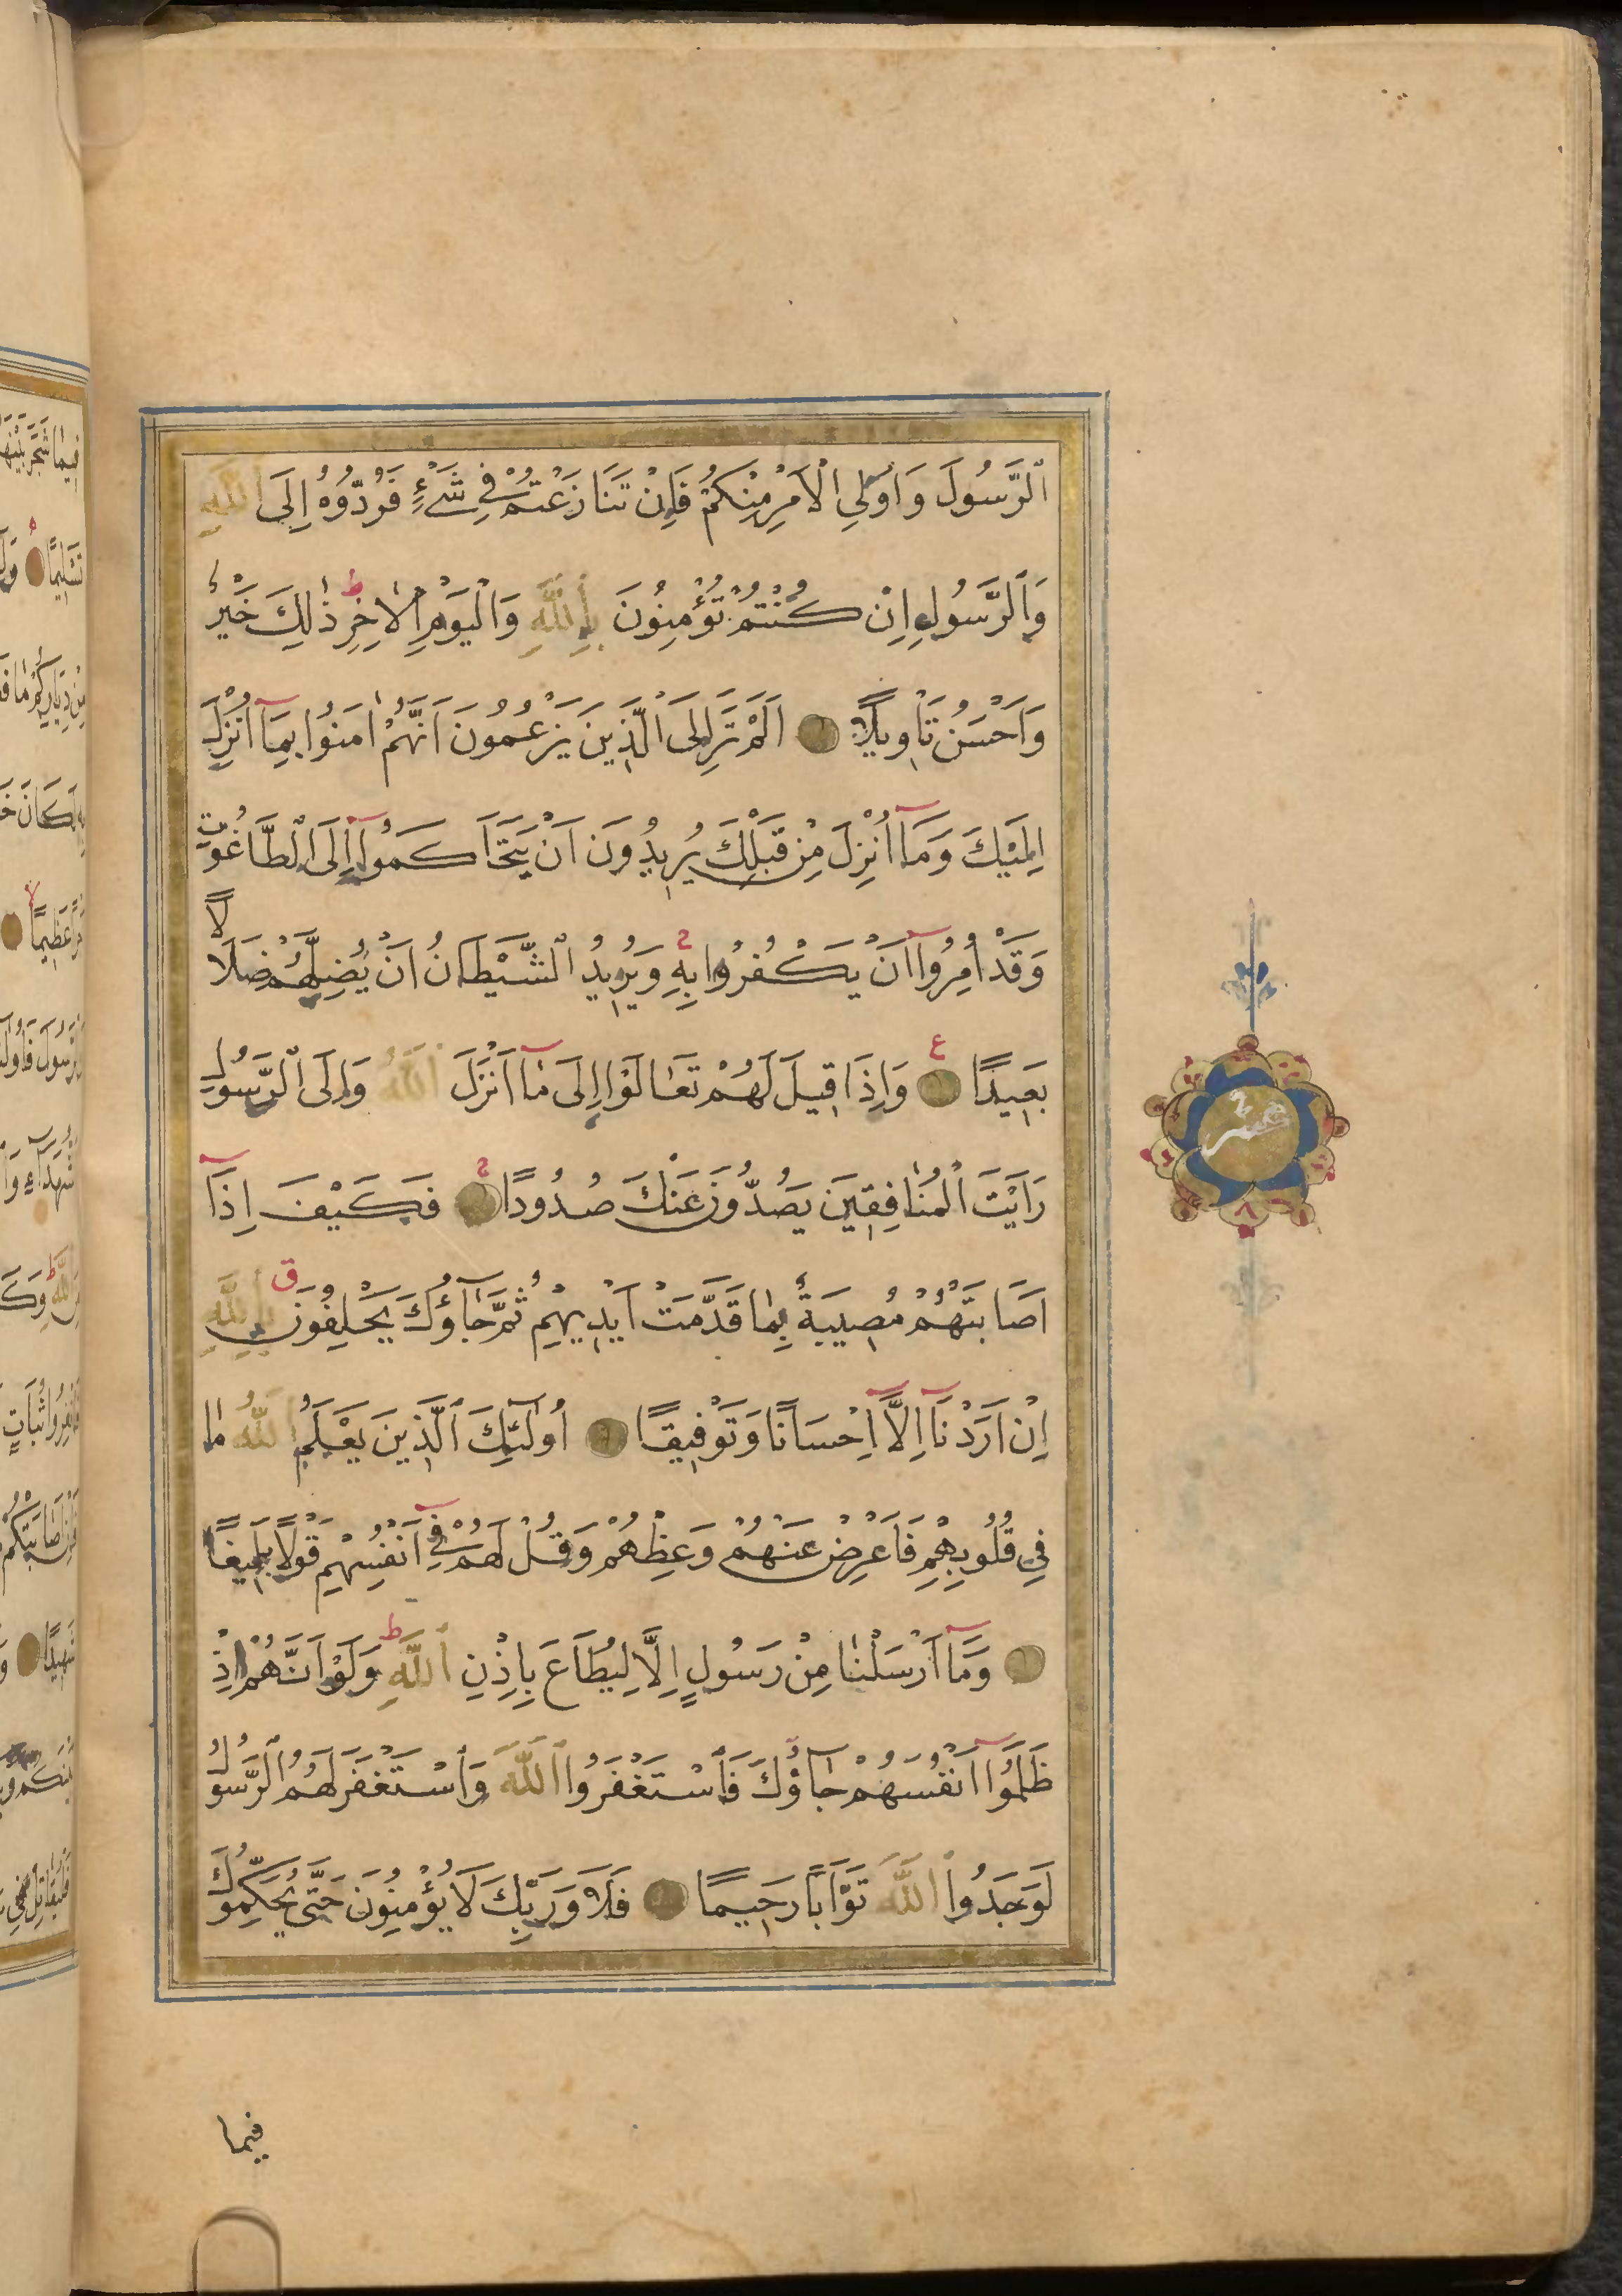 ٱلرَّسُولَ وَاُولِي ٱلْاَمْرِ مِنْكُمْ فَاِنْ تَنَازَعْتُمْ فِي شَيْءٍ فَرُدُّوهُ اِلَى ٱللّٰهِ
وَٱلرَّسُولِ اِنْ كُنْتُمْ تُؤْمِنُونَ بِٱللّٰهِ وَٱلْيَوْمِ ٱلْاٰخِرِ ط ذٰلِكَ خَيْرٌ
وَاَحْسَنُ تَاْوِيلًا اَلَمْ تَرَ اِلَى ٱلَّذِينَ يَزْعُمُونَ اَنَّهُمْ اٰمَنُوا بِمَٓا اُنْزِلَ
اِلَيْكَ وَمَٓا اُنْزِلَ مِنْ قَبْلِكَ يُرِيدُونَ اَنْ يَتَحَاكَمُٓوا اِلَى ٱلطَّاغُوتِ
وَقَدْ اُمِرُٓوا اَنْ يَكْفُرُوا بِهِ وَيُرِيدُ ٱلشَّيْطَانُ اَنْ يُضِلَّهُمْ ضَلَالًا
بَعِيدًا ع وَاِذَا قِيلَ لَهُمْ تَعَالَوْا اِلَى مَٓا اَنْزَلَ ٱللّٰهُ وَاِلَى ٱلرَّسُولِ
رَاَيْتَ ٱلْمُنَافِقِينَ يَصُدُّونَ عَنْكَ صُدُودًا فَكَيْفَ اِذَٓا
اَصَابَتْهُمْ مُصِيبَةٌ بِمَا قَدَّمَتْ اَيْدِيهِمْ ثُمَّ جَآؤُكَ يَحْلِفُونَ ق بِٱللّٰهِ
اِنْ اَرَدْنَٓا اِلَّٓا اِحْسَانًا وَتَوْفِيقًا اُولٰٓئِكَ ٱلَّذِينَ يَعْلَمُ ٱللّٰهُ مَا
فِي قُلُوبِهِمْ فَاَعْرِضْ عَنْهُمْ وَعِظْهُمْ وَقُلْ لَهُمْ فِٓي اَنْفُسِهِمْ قَوْلًا بَلِيغًا
وَمَٓا اَرْسَلْنَا مِنْ رَسُولٍ اِلَّا لِيُطَاعَ بِاِذْنِ ٱللّٰهِ ط وَلَوْ اَنَّهُمْ اِذْ
ظَلَمُٓوا اَنْفُسَهُمْ جَآؤُكَ فَٱسْتَغْفَرُوا ٱللّٰهَ وَٱسْتَغْفَرَ لَهُمُ ٱلرَّسُولُ
لَوَجَدُوا ٱللّٰهَ تَوَّابًا رَحِيمًا فَلَا وَرَبِّكَ لَا يُؤْمِنُونَ حَتَّى يُحَكِّمُوكَ
فيما